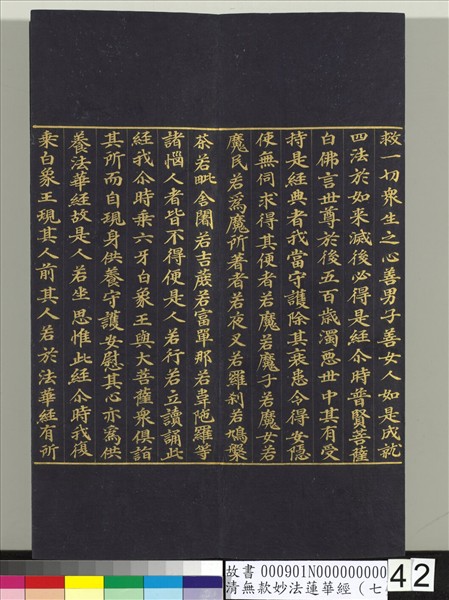 救一切衆生之心善男子善女人如是成就
四法於如來滅後必得是經尒時普賢菩薩
白佛言世尊於後五百歲濁惡世中其有受
持是經典者我當守護除其衰患令得安隱
使無伺求得其便者若魔若魔子若魔女若
魔民若為魔所著者若夜叉若羅刹若鳩槃
茶若毗舍闍若吉蔗若富單那若韋陁羅等
諸惱人者皆不得便是人若行若立讀誦此
經我尒時乘六牙白象王與大菩薩衆俱詣
其所而自現身供養守護安慰其心亦為供
養法華經故是人若坐思惟此經尒時我復
乘白象王現其人前其人若於法華經有所
故書 000901N000000000
清無款妙法蓮華經（七
42